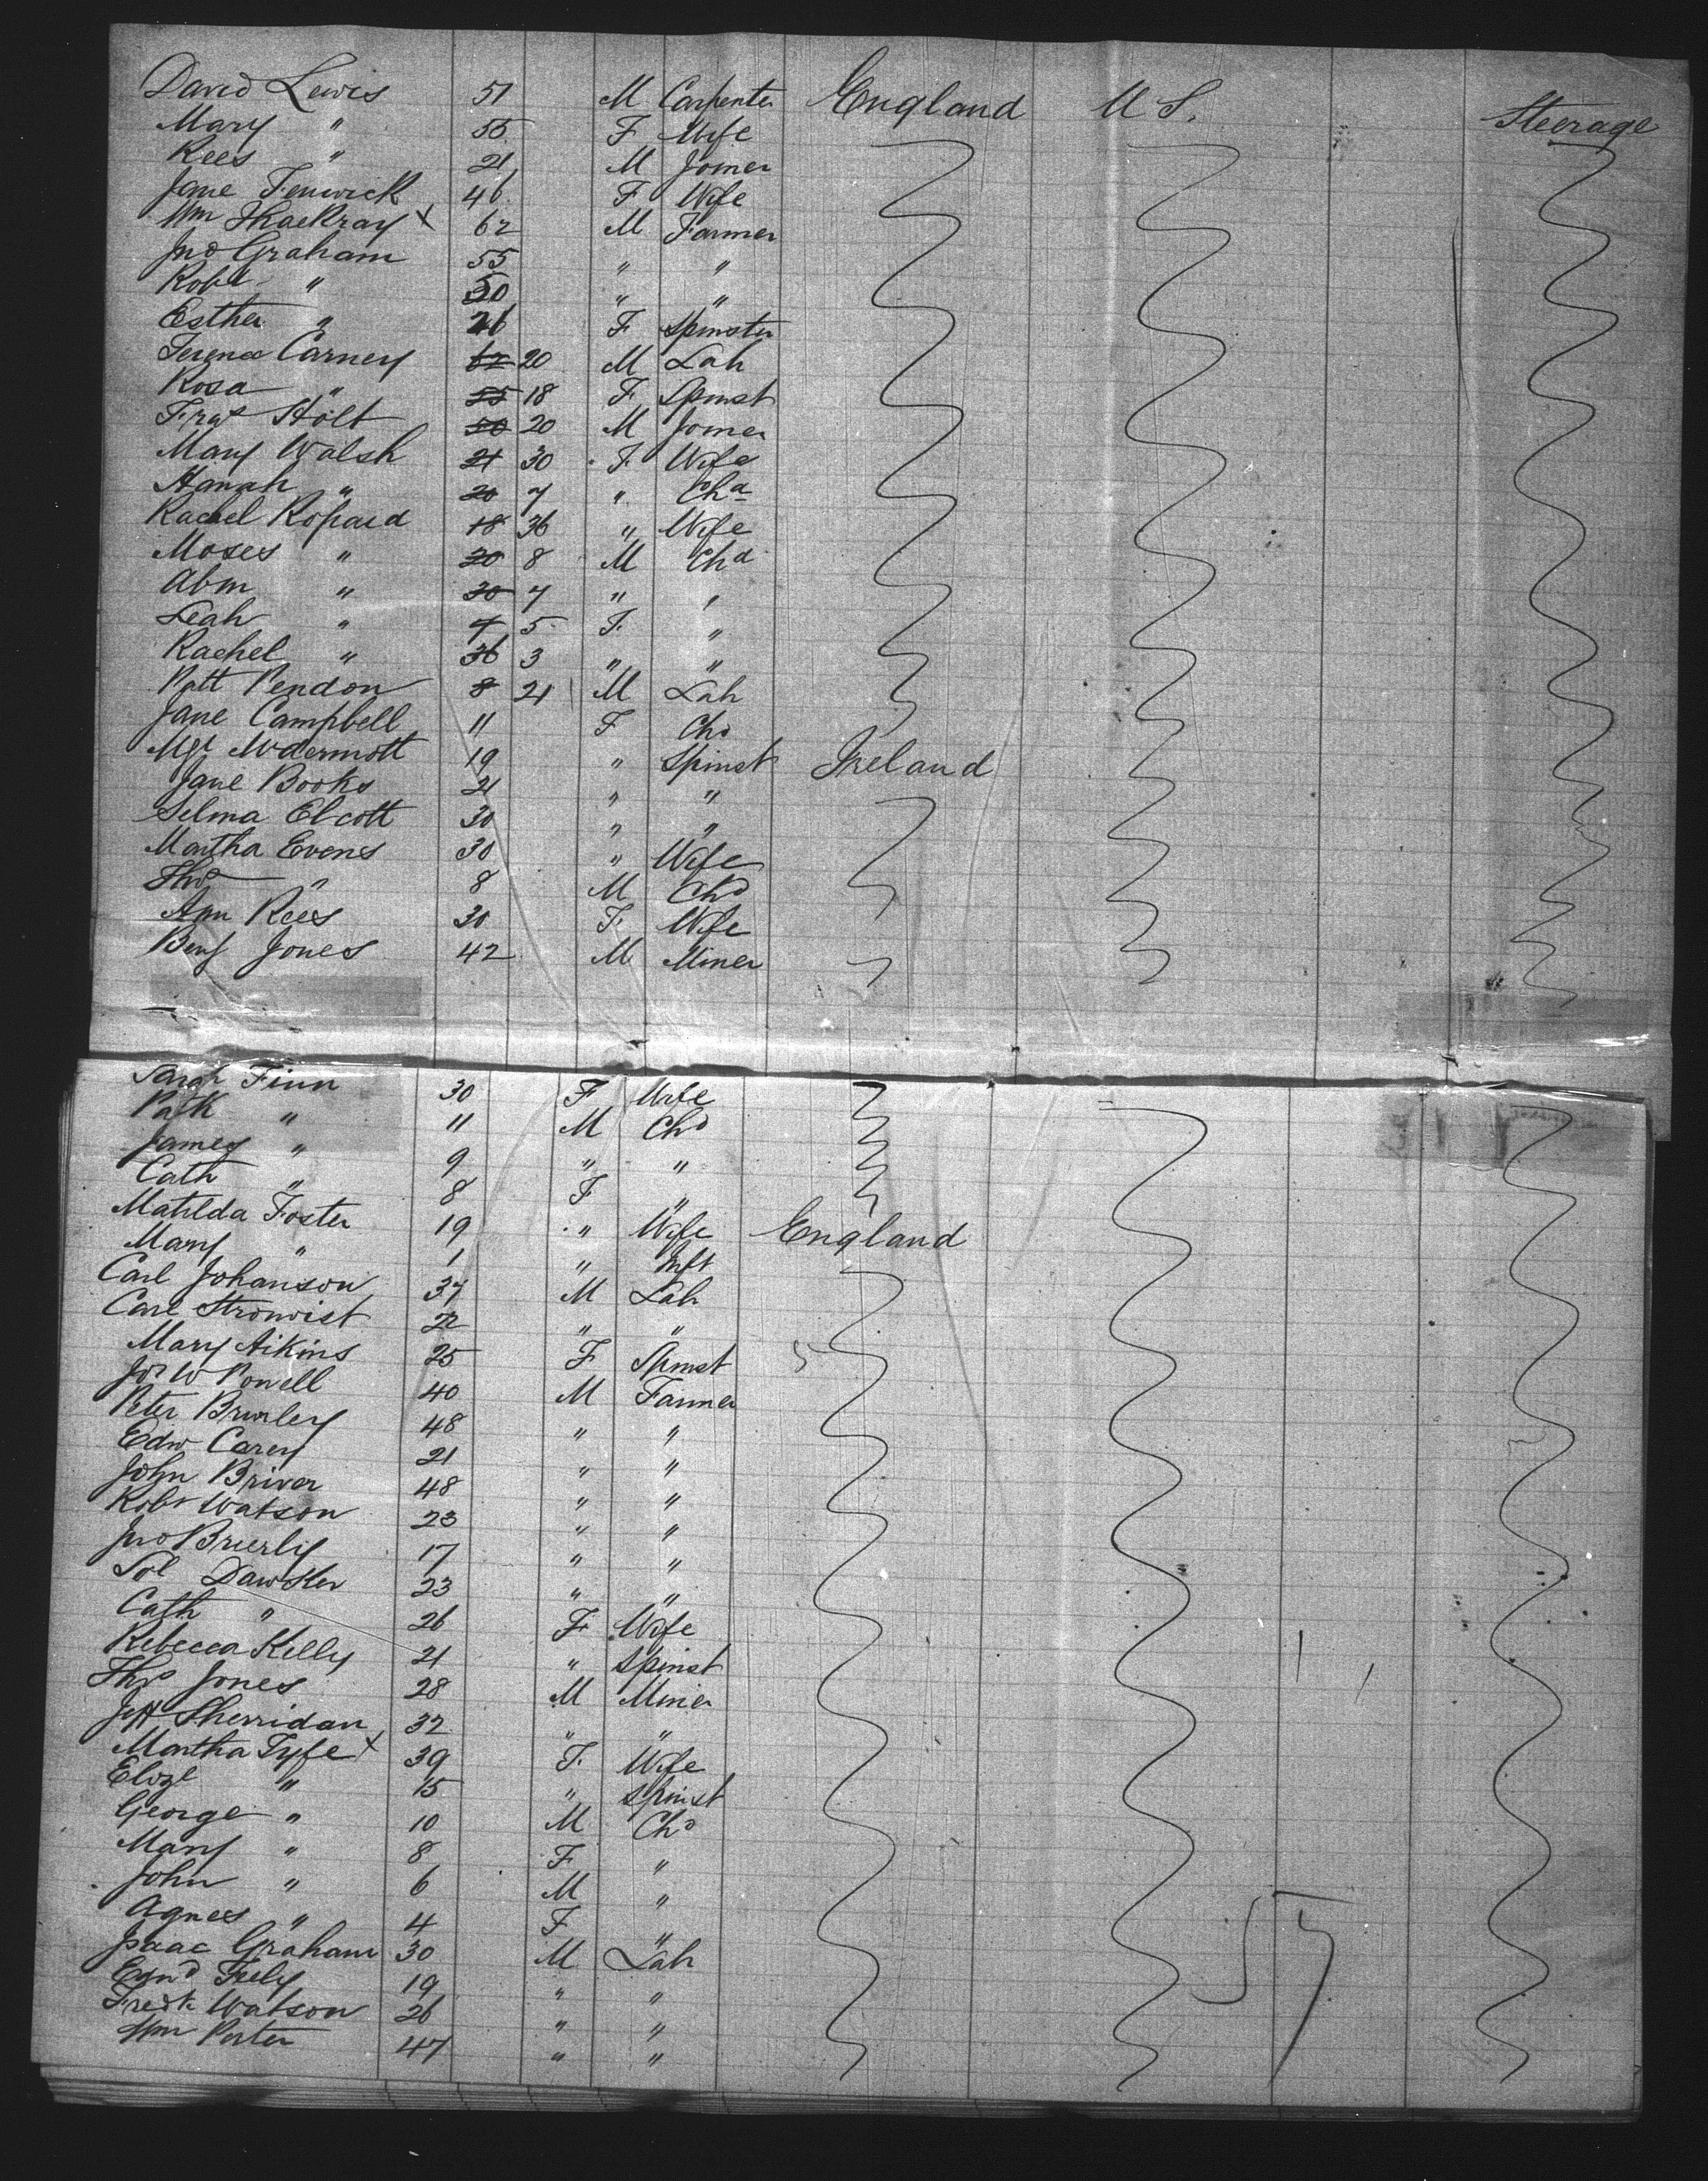 David Lewis 51 M Carpenter England U S. Steerage
Mary " 55 F Wife
Rees " 21 M Joiner
Jane Fenwick 46 F Wife
Wm Thackray x 62 M Farmer
Jno Graham 55 " "
Robt " 50 " "
Esther " 26 F Spinster
Terence Carney 62 20 M Lab
Rosa " 55 18 F Spinst
Fras Holt 50 20 M Joiner
Mary Walsh 21 30 F Wife
Hanah " 20 7 " Chd
Rachel 18 36 " Wife
Moses " 20 8 M Chd
Abm " 30 7 " "
Leah " 7 5 F "
Rachel " 36 3 " "
Patt Pendon 8 21 M Lab
Jane Campbell 11 F Chd
Mgt McDermott 19 " Spinst Ireland
Jane Books 21 " "
Selma Elcott 30 " "
Martha Evens 30 " Wife
Thos " 8 M Chd
Ann Rees 30 F Wife
Benj Jones 42 M Miner
Sarah Finn 30 F Wife
Patk " 11 M Chd
James " 9 " "
Cath " 8 F "
Matilda Foster 19 " Wife England
Mary " 1 " Inft
Carl Johanson 37 M Lab
Carl 22 " "
Mary Aikins 25 F Spinst
Jos W Powell 40 M Farmer
Peter 48 " "
Edw Carey 21 " "
John Briver 48 " "
Robt Watson 23 " "
Jno Brierly 17 " "
Sol Dawker 23 " "
Cath " 26 F Wife
Rebecca Kelly 21 " Spinst
Thos Jones 28 M Miner
Jeff Sherridan 32 " "
Martha Fyfe x 39 F Wife
Elizt " 15 " Spinst
George " 10 M Chd
Mary " 8 F "
John " 6 M "
Agnes " 4 F "
Isaac Graham 30 M Lab
Edwd 19 " "
Fredk Watson 26 " "
Wm Porter 47 " "
57